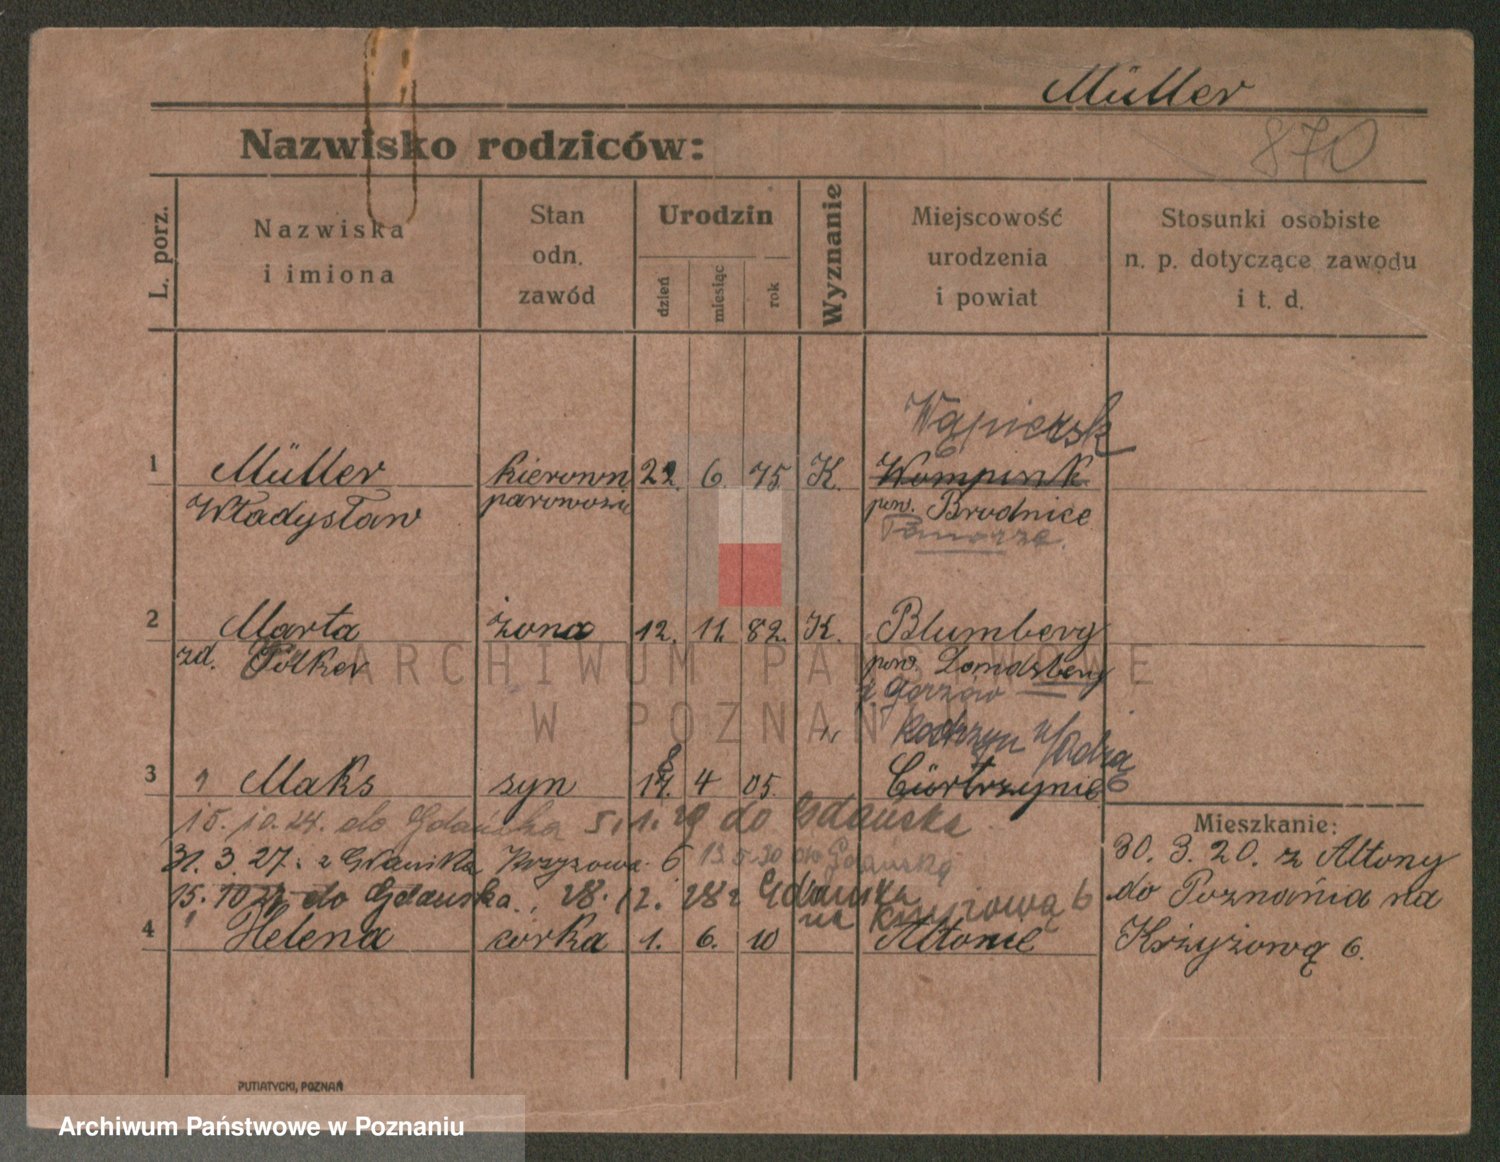 Müller
870
Nazwisko rodziców:
L. porz.
Nazwiska
i imiona
Stan
odn.
zawód
Urodzin
dzień
miesiąc
rok
Wyznanie
Miejscowość
urodzenia
i powiat
Stosunki osobiste
n. p. dotyczące zawodu
i t. d.
Wąpiersk
1 Müller kierown 22. 6. 75 K. Wompirsk
Władysław parowozu pow. Brodnice
Pomorze.
2 Marta żona 12. 11. 82. K. Blumberg
zd. Pölker pow. Landsberg
Gorzów
Kostrzyn n/Odrą
3 Maks syn 18 4 05. Cüstrzynie
15. 10. 24. do Gdańska 5. 1. 29 do Gdańska
Mieszkanie:
31. 3. 27. z Gdańska Krzyżowa 6 13 5 30 do Gdańska
30. 3. 20. z Altony
15. 10 27 do Gdańska. 28. 12. 28 z Gdańska
na Krzyżową 6
do Poznania na
4 Helena córka 1. 6. 10 Altonie
Krżyżową 6.
PUTIATYCKI, POZNAŃ
ARCHIWUM PAŃSTWOWE
W POZNANIU
Archiwum Państwowe w Poznaniu